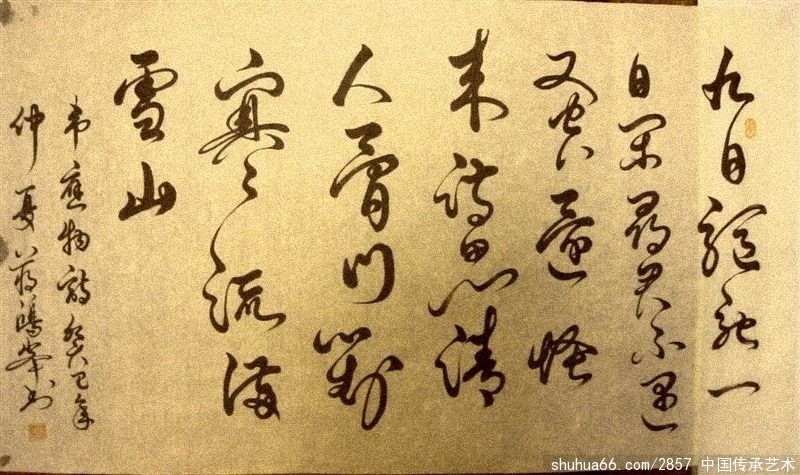 九日驅馳一
日閒尋君不遇
又空還怪
来詩思清
人骨门對
寒流满
雪山
韦應物詩癸巳年
仲夏蒋鴻峯书
shuhua66.com/2857 中国传承艺术